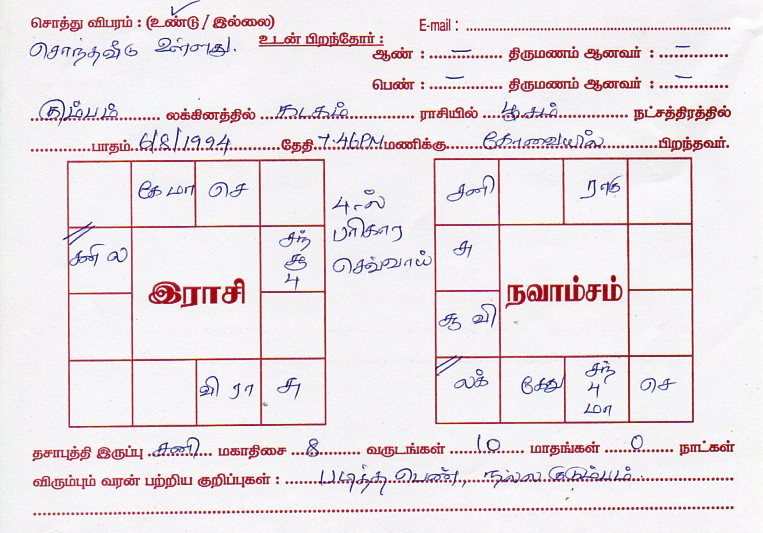 சொத்து விபரம் : (உண்டு / இல்லை) E-mail :
சொந்தவீடு உள்ளது. உடன் பிறந்தோர் : ஆண் : – திருமணம் ஆனவர் : –
பெண் : – திருமணம் ஆனவர் : –
கும்பம் லக்கினத்தில் கடகம் ராசியில் பூசம் நட்சத்திரத்தில்
பாதம் 6/8/1994 தேதி 7:46PM மணிக்கு கோவையில் பிறந்தவர்.
கே மா செ
சனி ல
சந் சூ 4
இராசி
வி ரா
சு
4-ல்
பரிகார
செவ்வாய்
சனி
ராகு
சு
நவாம்சம்
சூ வி
லக்
கேது
சந்
4
மா
செ
தசாபுத்தி இருப்பு சனி மகாதிசை 8 வருடங்கள் 10 மாதங்கள் 0 நாட்கள்
விரும்பும் வரன் பற்றிய குறிப்புகள் : படித்த பெண், நல்ல குடும்பம்